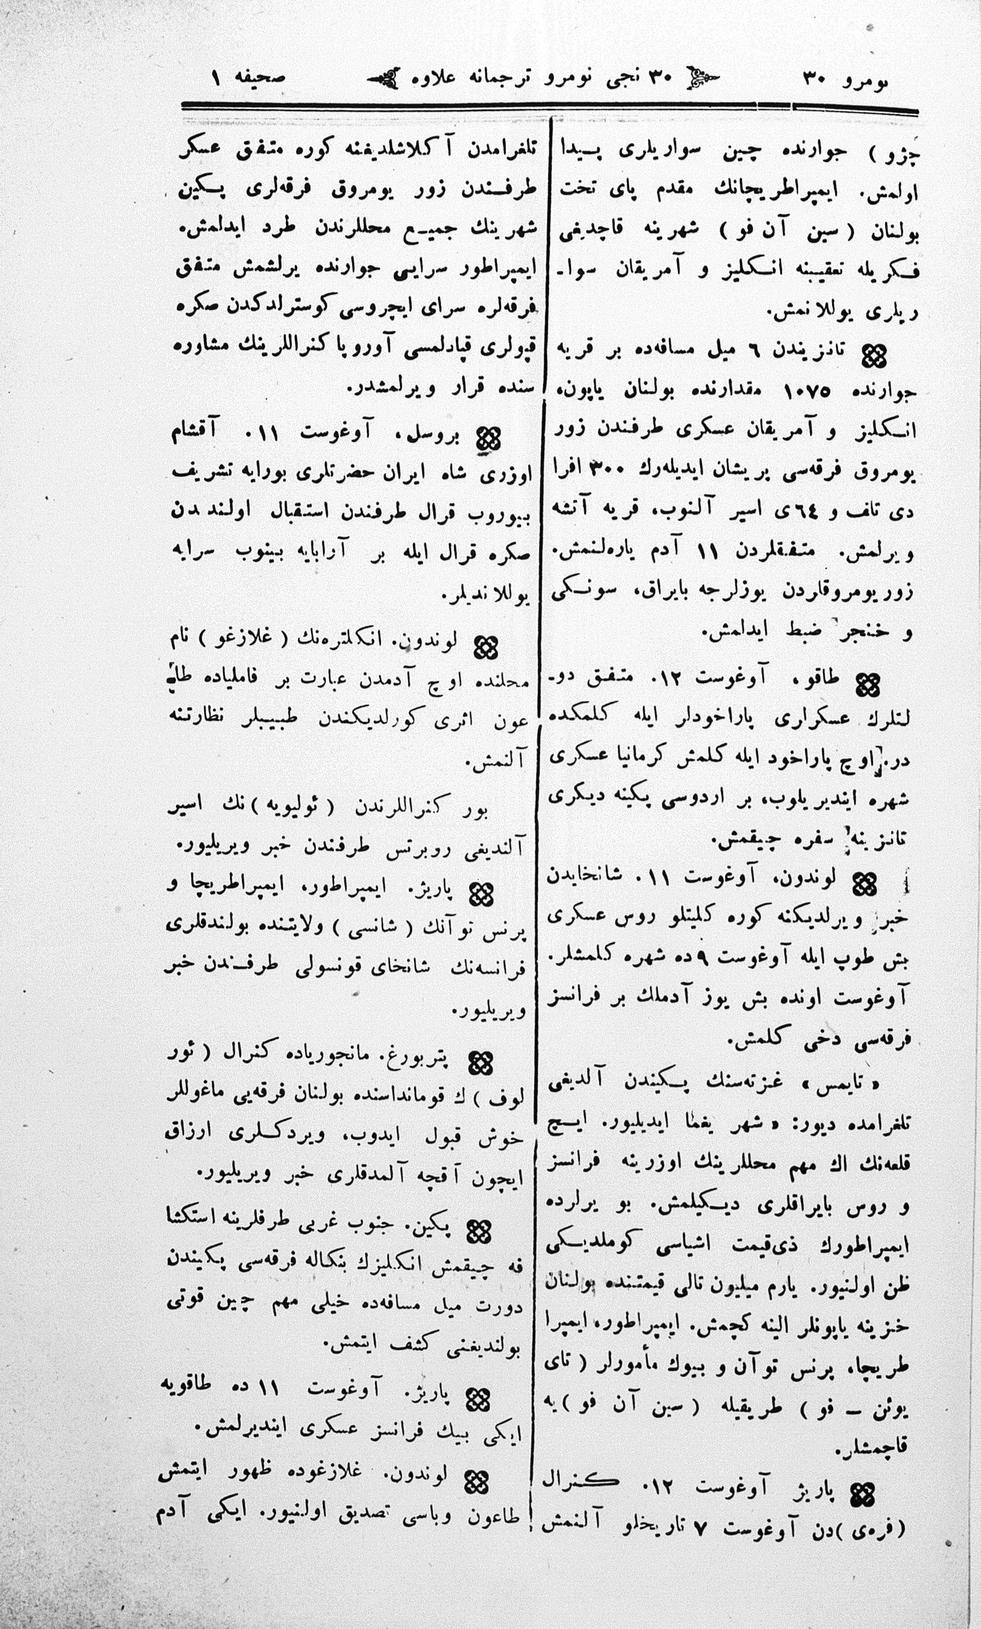 نومرو ۳۰
۳۰ نجی نومرو ترجمانه علاوه
صحیفه ۱
چژو ) جوارنده چین سواریلری پیدا
اولمش. ایمپراطریچانك مقدم پای تخت
بولنان ( سین آن فو ) شهرینه قاچدیغی
فکریله تعقیبنه انکلیز و آمریقان سوا-
ریلری یوللانمش.
تانزیندن ٦ میل مسافه‌ده بر قریه
جوارنده ۱۰۷۵ مقدارنده بولنان یاپون،
انکلیز و آمریقان عسکری طرفندن زور
یومروق فرقه‌سی پریشان ایدیله‌رك ۳۰۰ افرا
دی تلف و ٦٤ی اسیر آلنوب، قریه آتشه
ویرلمش. متفقلردن ۱۱ آدم یاره‌لنمش.
زور یومروقلردن یوزلرجه بایراق، سونکی
و خنجر ضبط ایدلمش.
طاقو، آوغوست ۱۲. متفق دو-
لتلرك عسکراری پاراخودلر ایله کلمکده
در. اوچ پاراخود ایله کلمش کرمانیا عسکری
شهره ایندیریلوب، بر اردوسی پکینه دیکری
تانزینه سفره چیقمش.
لوندون، آوغوست ۱۱. شانخایدن
خبر ویرلدیکنه کوره کلیتلو روس عسکری
بش طوپ ایله آوغوست ۹ ده شهره کلمشلر.
آوغوست اونده بش یوز آدملك بر فرانسز
فرقه‌سی دخی کلمش.
« تایمس » غزته‌سنك پکیندن آلدیغی
تلغرامده دیور: « شهر یغما ایدیلیور. ایچ
قلعه‌نك اك مهم محللرینك اوزرینه فرانسز
و روس بایراقلری دیکیلمش. بو یرلرده
ایمپراطورك ذی‌قیمت اشیاسی کوملدیکی
ظن اولنیور. یارم میلیون تالی قیمتنده بولنان
خزینه یاپونلر الینه کچمش. ایمپراطور، ایمپرا
طریچا، پرنس توآن و بیوك مأمورلر ( تای
یوئن – فو ) طریقیله ( سین آن فو )یه
قاچمشلر.
پاریژ آوغوست ۱۲. کنرال
( فره‌ی )دن آوغوست ۷ تاریخلو آلنمش
تلغرامدن آکلاشلدیغنه کوره متفق عسکر
طرفندن زور یومروق فرقه‌لری پکین
شهرینك جمیع محللرندن طرد ایدلمش.
ایمپراطور سرایی جوارنده یرلشمش متفق
فرقه‌لره سرای ایچروسی کوسترلدکدن صکره
قپولری قپادلمسی آوروپا کنراللرینك مشاوره
سنده قرار ویرلمشدر.
بروسل، آوغوست ۱۱. آقشام
اوزری شاه ایران حضرتلری بورایه تشریف
بیوروب قرال طرفندن استقبال اولندیدن
صکره قرال ایله بر آرابایه بینوب سرایه
یوللاندیلر.
لوندون. انکلتره‌نك ( غلازغو ) نام
محلنده اوچ آدمدن عبارت بر فاملیاده طا
عون اثری کورلدیکندن طبیبلر نظارتنه
آلنمش.
بور کنراللرندن ( ئولیویه )نك اسیر
آلندیغی روبرتس طرفندن خبر ویریلیور.
پاریژ. ایمپراطور، ایمپراطریچا و
پرنس توآنك ( شانسی ) ولایتنده بولندقلری
فرانسه‌نك شانخای قونسولی طرفندن خبر
ویریلیور.
پتربورغ. مانجوریاده کنرال ( ئور
لوف )ك قومانداسنده بولنان فرقه‌یی ماغوللر
خوش قبول ایدوب، ویردکلری ارزاق
ایچون آقچه آلمدقلری خبر ویریلیور.
پکین. جنوب غربی طرفلرینه استکشا
فه چیقمش انکلیزك بنکاله فرقه‌سی پکیندن
دورت میل مسافه‌ده خیلی مهم چین قوتی
بولندیغنی کشف ایتمش.
پاریژ. آوغوست ۱۱ ده طاقویه
ایکی بیك فرانسز عسکری ایندیرلمش.
لوندون. غلازغوده ظهور ایتمش
طاعون وباسی تصدیق اولنیور. ایکی آدم